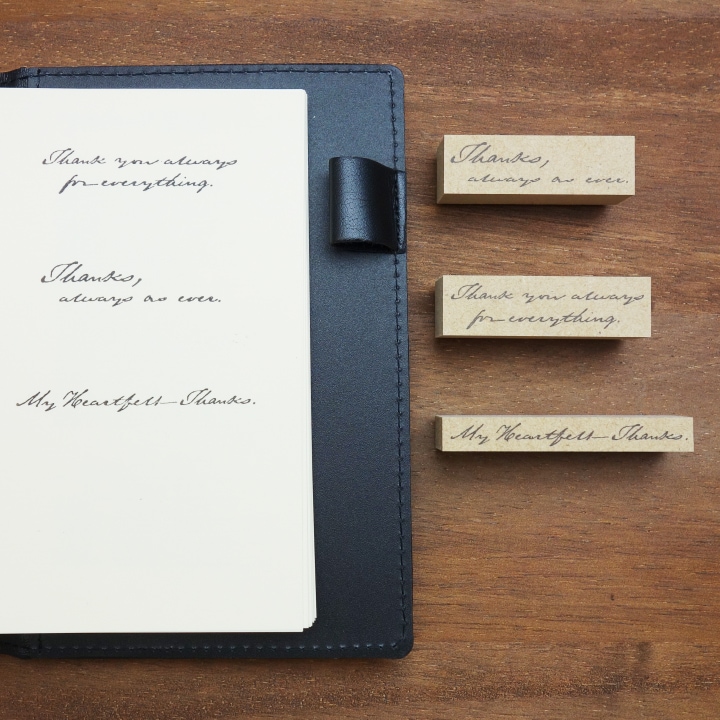 Thank you always
for everything.
Thanks,
always as ever.
My Heartfelt Thanks.
Thanks,
always as ever.
Thank you always
for everything.
My Heartfelt Thanks.